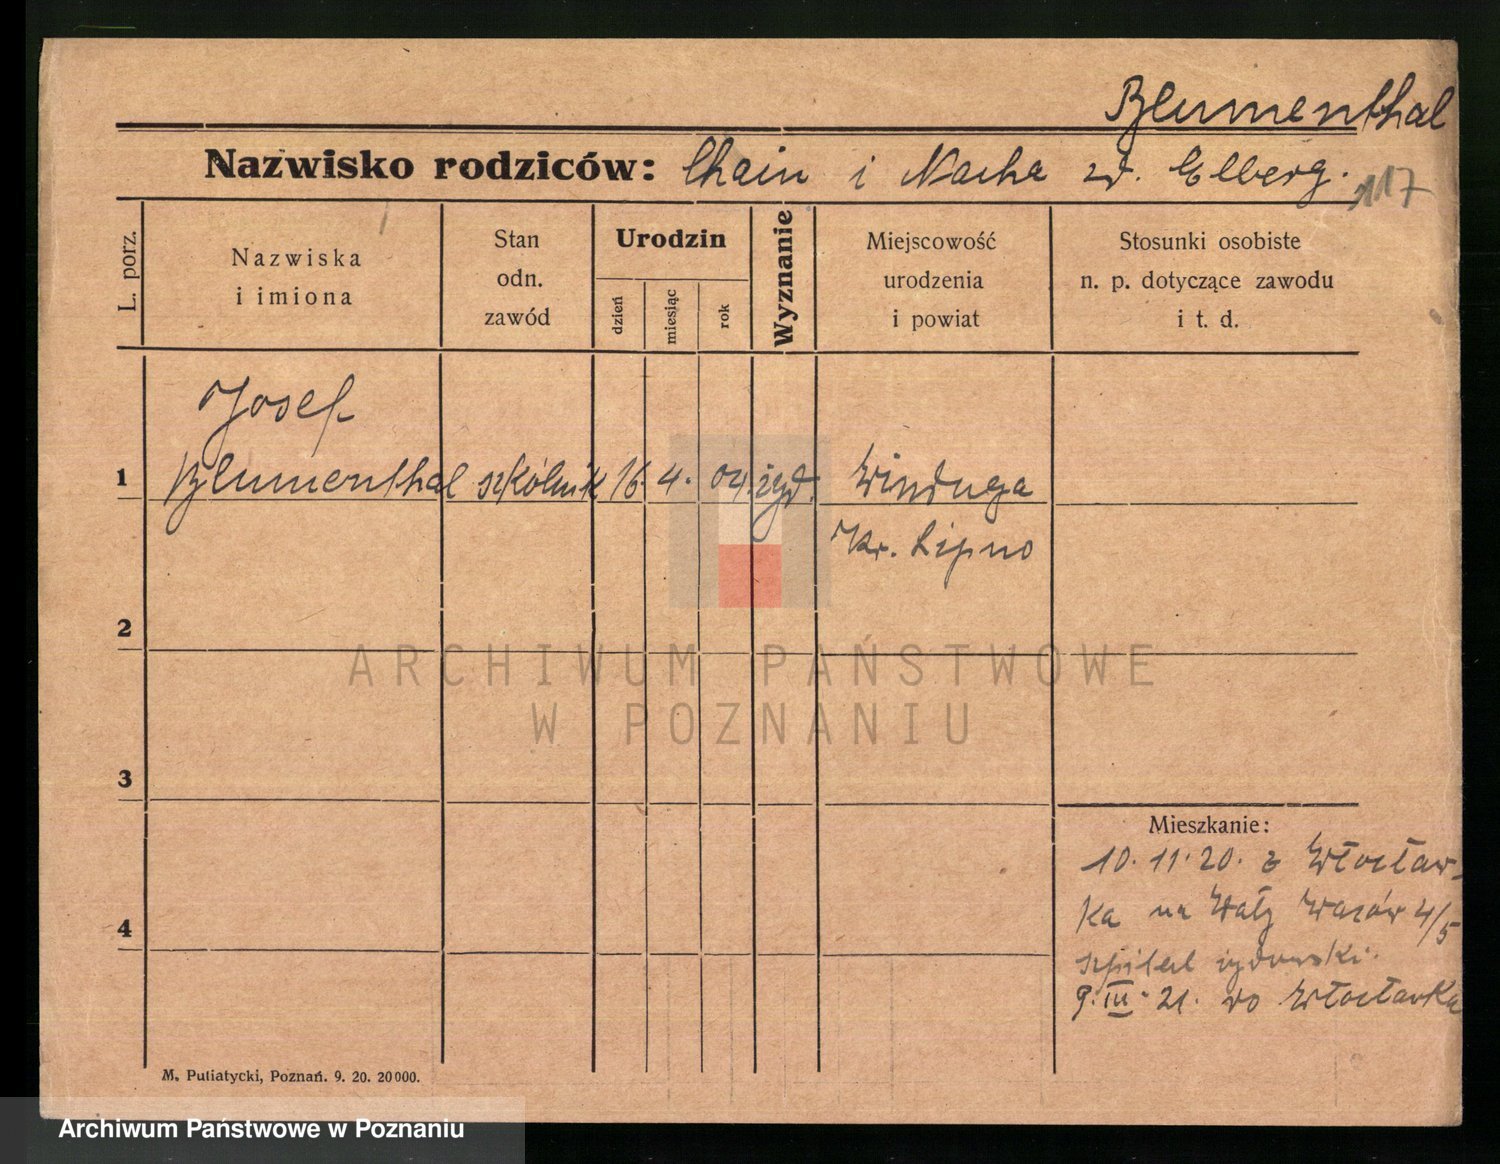 Blumenthal
Nazwisko rodziców: Chain i Nacha zd. Elberg.
117
L. porz.
Nazwiska
i imiona
Stan
odn.
zawód
Urodzin
dzień
miesiąc
rok
Wyznanie
Miejscowość
urodzenia
i powiat
Stosunki osobiste
n. p. dotyczące zawodu
i t. d.
Josef
1 Blumenthal szkolnik 16. 4. 04. żyd. Winduga
Kr. Lipno
2
ARCHIWUM PAŃSTWOWE
W POZNANIU
3
Mieszkanie:
10. 11. 20. z Włocław-
ka na Wały Wazów 4/5
4
szpital żydowski.
9. III. 21. do Włocławka
M. Putiatycki, Poznań. 9. 20. 20000.
Archiwum Państwowe w Poznaniu